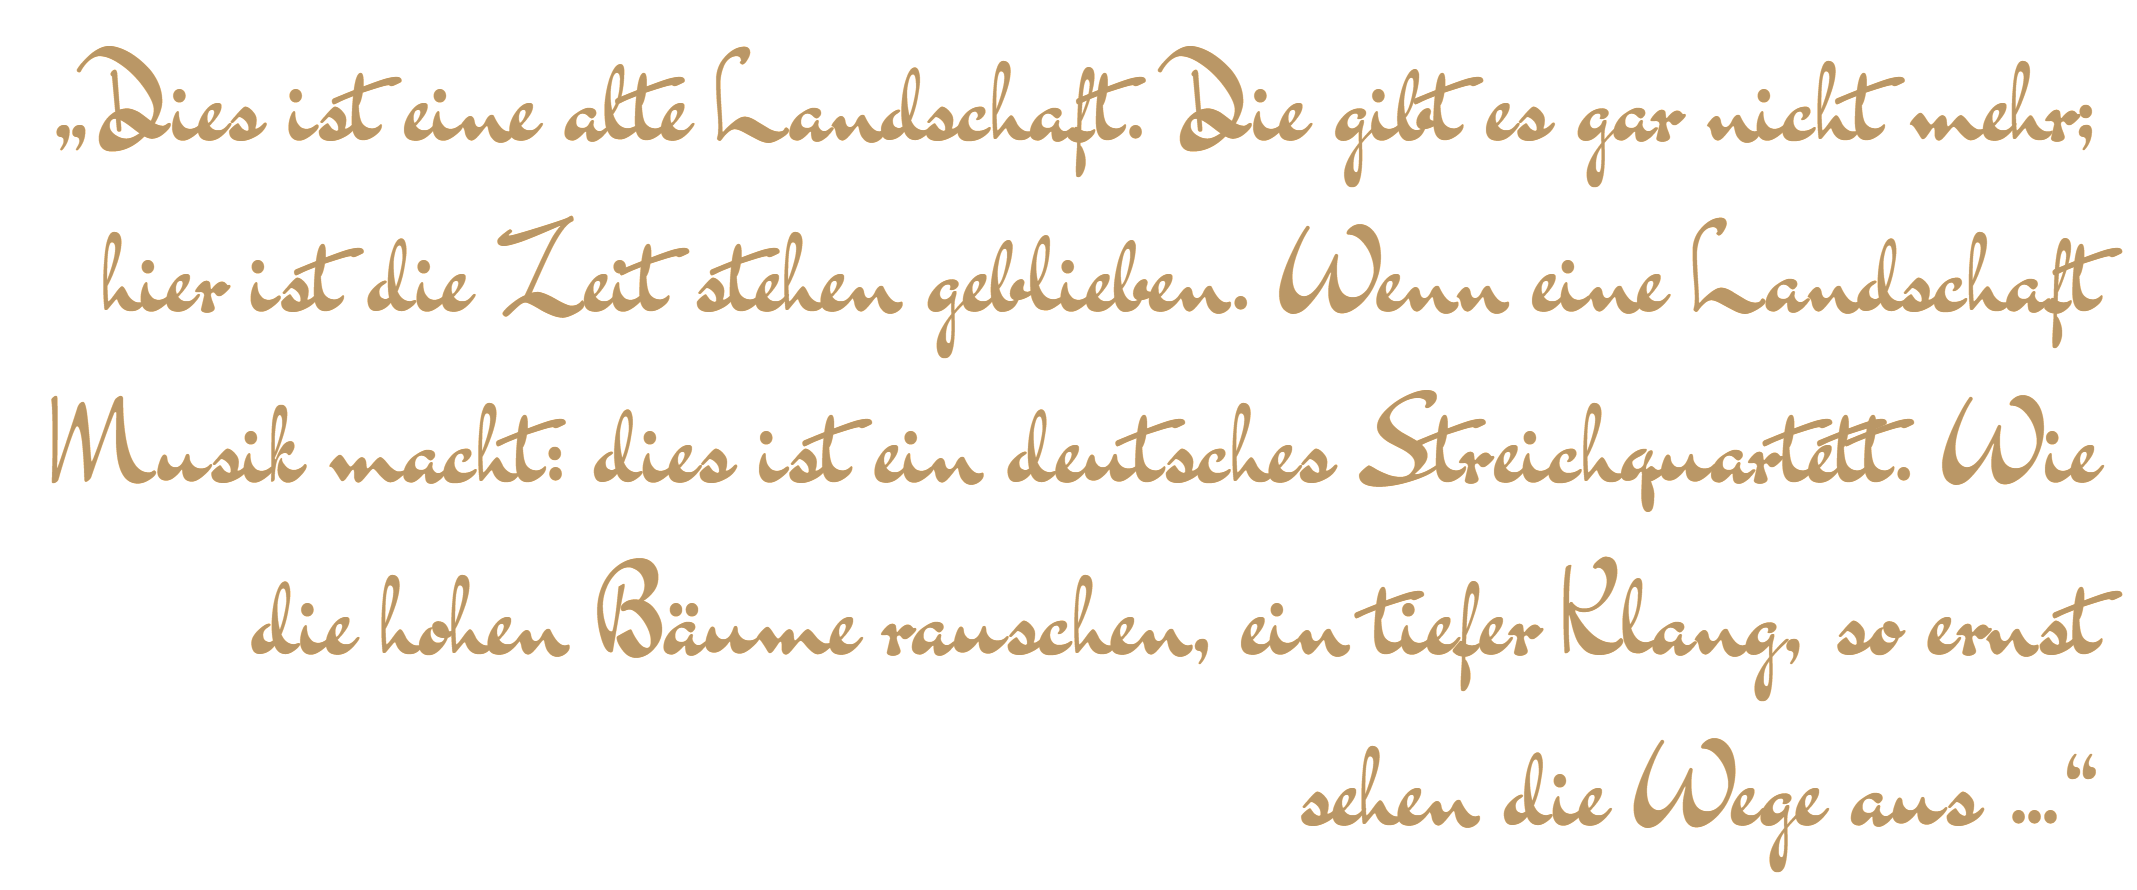 „Dies ist eine alte Landschaft. Die gibt es gar nicht mehr;
hier ist die Zeit stehen geblieben. Wenn eine Landschaft
Musik macht: dies ist ein deutsches Streichquartett. Wie
die hohen Bäume rauschen, ein tiefer Klang, so ernst
sehen die Wege aus ...“